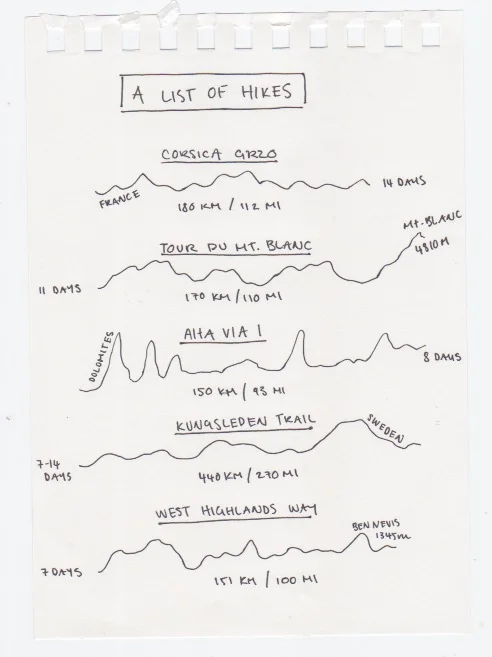 A LIST OF HIKES
CORSICA GR20
14 DAYS
FRANCE
180 KM / 112 MI
MT. BLANC
4810M
TOUR DU MT. BLANC
11 DAYS
170 KM / 110 MI
ALTA VIA 1
DOLOMITES
8 DAYS
150 KM / 93 MI
KUNGSLEDEN TRAIL
SWEDEN
7-14
DAYS
440 KM / 270 MI
WEST HIGHLANDS WAY
BEN NEVIS
1345m
7 DAYS
151 KM / 100 MI